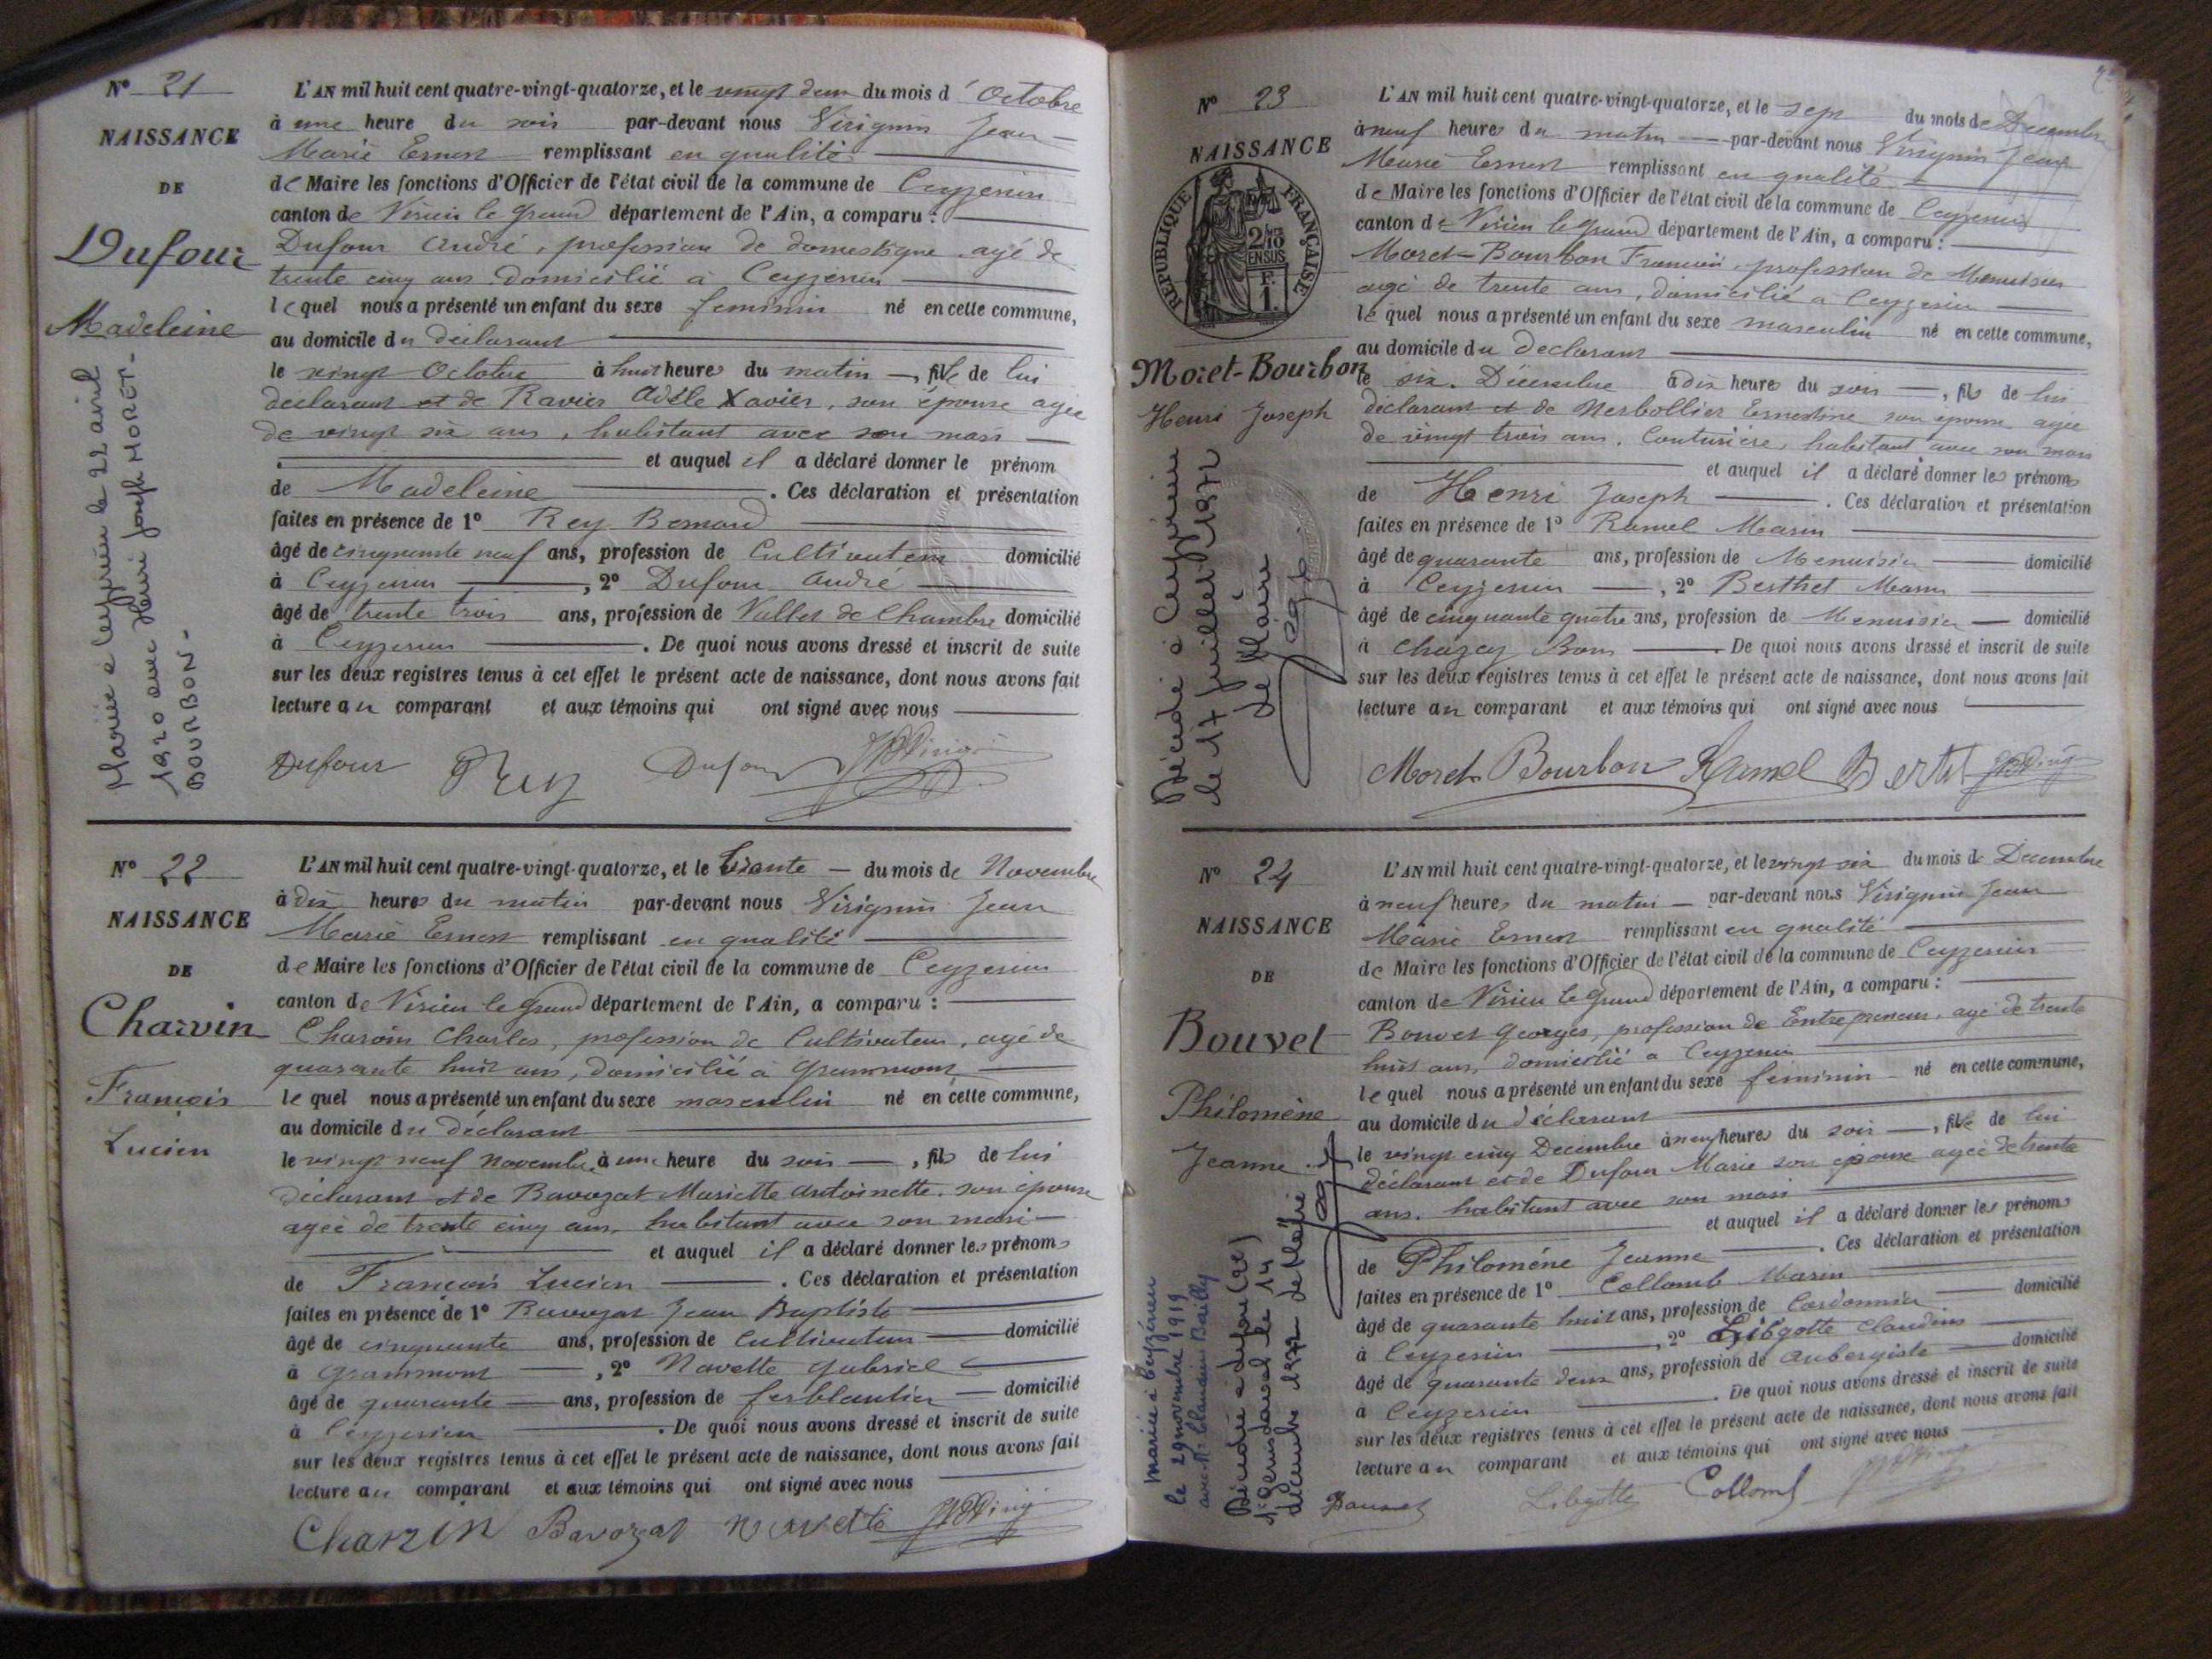 N° 21
NAISSANCE
DE
Dufour
Madeleine
Mariée à Ceyzérieu le 22 avril
1920 avec Henri Joseph MORET-
BOURBON-
L'AN mil huit cent quatre-vingt-quatorze, et le vingt deux du mois d'Octobre
à une heure du soir par-devant nous Virignin Jean
Marie Ernest remplissant en qualité
de Maire les fonctions d'Officier de l'état civil de la commune de Ceyzerieu
canton de Virieu le Grand département de l'Ain, a comparu :
Dufour André, profession de domestique, agé de
trente cinq ans domicilié à Ceyzerieu
lequel nous a présenté un enfant du sexe feminin né en cette commune,
au domicile du déclarant
le vingt Octobre à huit heures du matin, fille de lui
declarant et de Ravier Adèle Xavier, son épouse agée
de vingt six ans, habitant avec son mari
et auquel il a déclaré donner le prénom
de Madeleine. Ces déclaration et présentation
faites en présence de 1° Rey Bernard
âgé de cinquante neuf ans, profession de Cultivateur domicilié
à Ceyzerieu, 2° Dufour André
âgé de trente trois ans, profession de Vallet de Chambre domicilié
à Ceyzerieu. De quoi nous avons dressé et inscrit de suite
sur les deux registres tenus à cet effet le présent acte de naissance, dont nous avons fait
lecture au comparant et aux témoins qui ont signé avec nous
Dufour Rey Dufour
N° 22
NAISSANCE
DE
Charvin
François
Lucien
L'AN mil huit cent quatre-vingt-quatorze, et le trente du mois de Novembre
à dix heures du matin par-devant nous Virignin Jean
Marie Ernest remplissant en qualité
de Maire les fonctions d'Officier de l'état civil de la commune de Ceyzerieu
canton de Virieu le Grand département de l'Ain, a comparu :
Charvin Charles, profession de Cultivateur, agé de
quarante huit ans, domicilié à Grammont
lequel nous a présenté un enfant du sexe masculin né en cette commune,
au domicile du déclarant
le vingt neuf Novembre à une heure du soir, fils de lui
déclarant et de Bavozat Mariette Antoinette, son épouse
agée de trente cinq ans, habitant avec son mari
et auquel il a déclaré donner les prénoms
de François Lucien. Ces déclaration et présentation
faites en présence de 1° Bavozat Jean Baptiste
âgé de cinquante ans, profession de Cultivateur domicilié
à Grammont, 2° Navette Gabriel
âgé de quarante ans, profession de ferblantier domicilié
à Ceyzerieu. De quoi nous avons dressé et inscrit de suite
sur les deux registres tenus à cet effet le présent acte de naissance, dont nous avons fait
lecture au comparant et aux témoins qui ont signé avec nous
Charvin Bavozat Navette
N° 23
NAISSANCE
RÉPUBLIQUE FRANÇAISE
2/10
EN SUS
F.
1.
Moret-Bourbon
Henri Joseph
Décédé à Ceyzérieu
le 17 juillet 1972
Le Maire
L'AN mil huit cent quatre-vingt-quatorze, et le sept du mois de Decembre
à neuf heures du matin par-devant nous Virignin Jean
Marie Ernest remplissant en qualité
de Maire les fonctions d'Officier de l'état civil de la commune de Ceyzerieu
canton de Virieu le Grand département de l'Ain, a comparu :
Moret-Bourbon François, profession de Menuisier
agé de trente ans, domicilié à Ceyzerieu
lequel nous a présenté un enfant du sexe masculin né en cette commune,
au domicile du declarant
le six Décembre à dix heures du soir, fils de lui
déclarant et de Nerbollier Ernestine son épouse agée
de vingt trois ans, Couturière, habitant avec son mari
et auquel il a déclaré donner les prénoms
de Henri Joseph. Ces déclaration et présentation
faites en présence de 1° Ramel Marin
âgé de quarante ans, profession de Menuisier domicilié
à Ceyzerieu, 2° Berthet Marin
âgé de cinquante quatre ans, profession de Menuisier domicilié
à Chazey Bons. De quoi nous avons dressé et inscrit de suite
sur les deux registres tenus à cet effet le présent acte de naissance, dont nous avons fait
lecture au comparant et aux témoins qui ont signé avec nous
Moret Bourbon Ramel Bertet
N° 24
NAISSANCE
DE
Bouvet
Philomène
Jeanne
Mariée à Ceyzérieu
le 29 novembre 1919
avec Mr Claudius Bailly
Décédée à
le 14
décembre 1972 Le Maire
L'AN mil huit cent quatre-vingt-quatorze, et le vingt six du mois de Decembre
à neuf heures du matin par-devant nous Virignin Jean
Marie Ernest remplissant en qualité
de Maire les fonctions d'Officier de l'état civil de la commune de Ceyzerieu
canton de Virieu le Grand département de l'Ain, a comparu :
Bouvet Georges, profession de Entrepreneur, agé de trente
huit ans, domicilié à Ceyzerieu
lequel nous a présenté un enfant du sexe féminin né en cette commune,
au domicile du déclarant
le vingt cinq Décembre à neuf heures du soir, fille de lui
déclarant et de Dufour Marie son épouse agée de trente
ans, habitant avec son mari
et auquel il a déclaré donner les prénoms
de Philomène Jeanne. Ces déclaration et présentation
faites en présence de 1° Collomb Marin
âgé de quarante huit ans, profession de Cordonnier domicilié
à Ceyzerieu, 2° Libgotte Claudius
âgé de quarante deux ans, profession de Aubergiste domicilié
à Ceyzerieu. De quoi nous avons dressé et inscrit de suite
sur les deux registres tenus à cet effet le présent acte de naissance, dont nous avons fait
lecture au comparant et aux témoins qui ont signé avec nous
Bouvet Libgotte Collomb